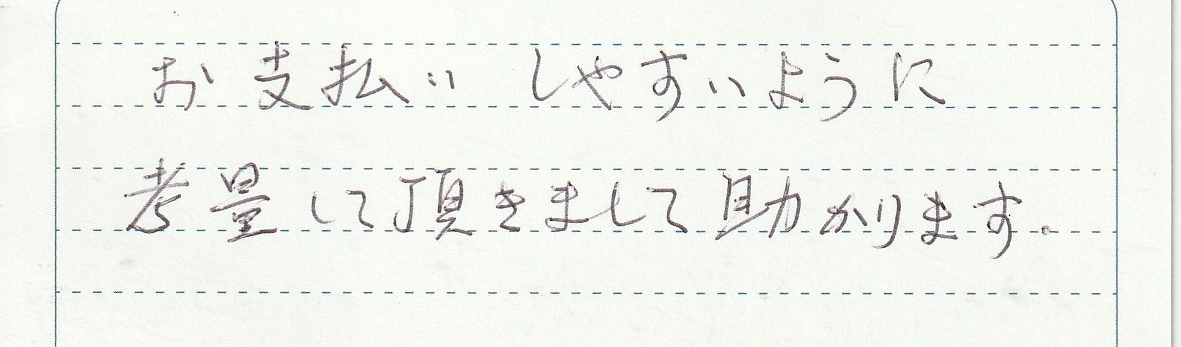 お支払いしやすいように
考量して頂きまして助かります。